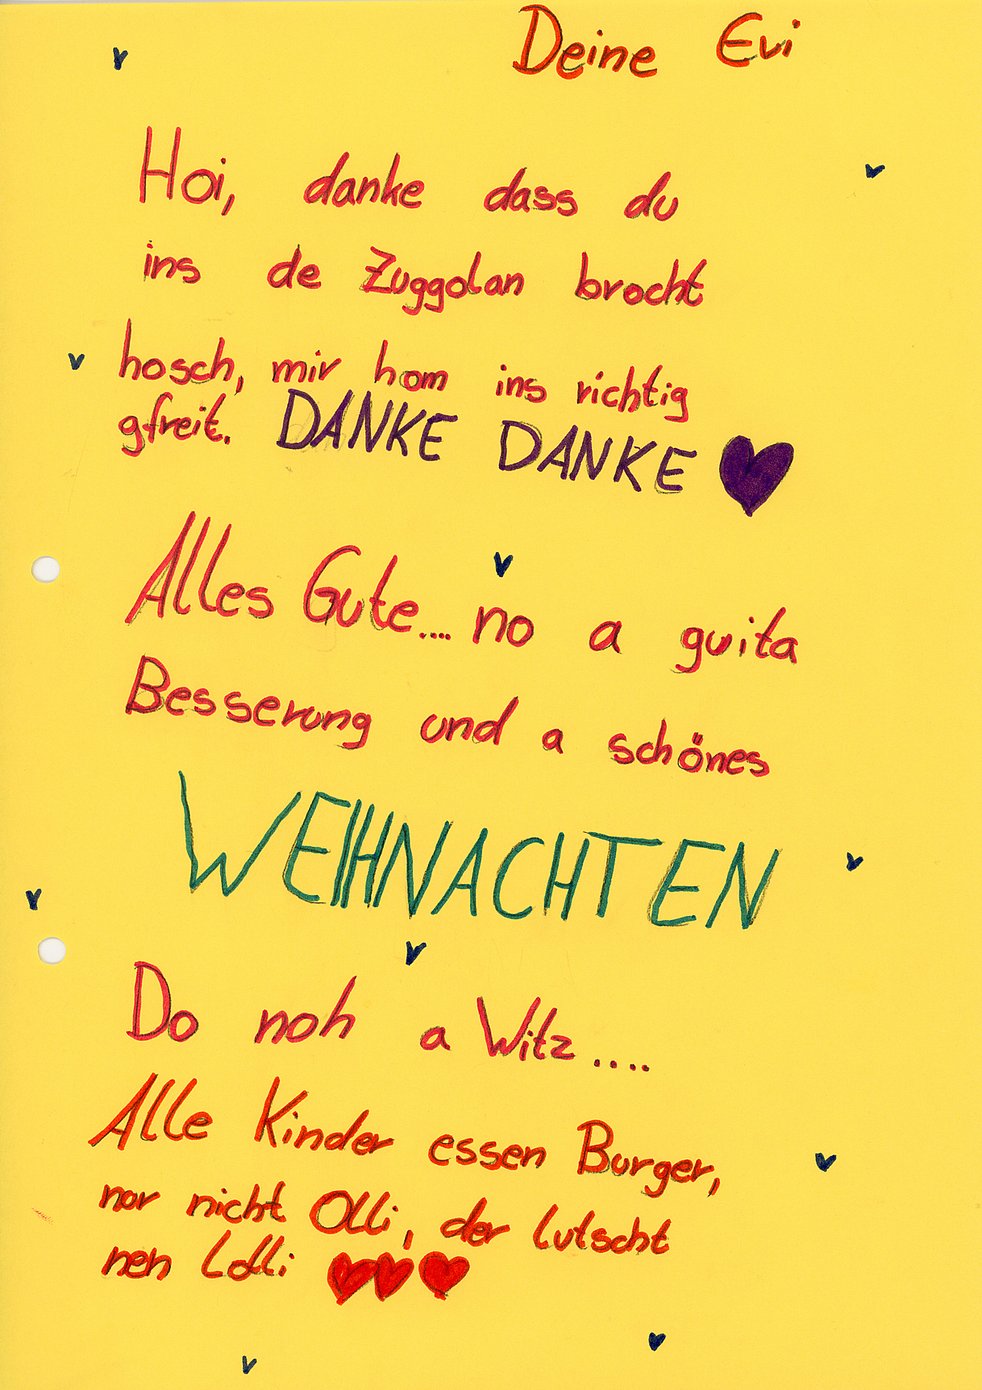 Deine Evi
Hoi, danke dass du
ins de Zuggolan brocht
hosch, mir hom ins richtig
gfreit. DANKE DANKE
Alles Gute.... no a guita
Besserung und a schönes
WEIHNACHTEN
Do noh a Witz....
Alle Kinder essen Burger,
nur nicht Olli, der lutscht
nen Lolli